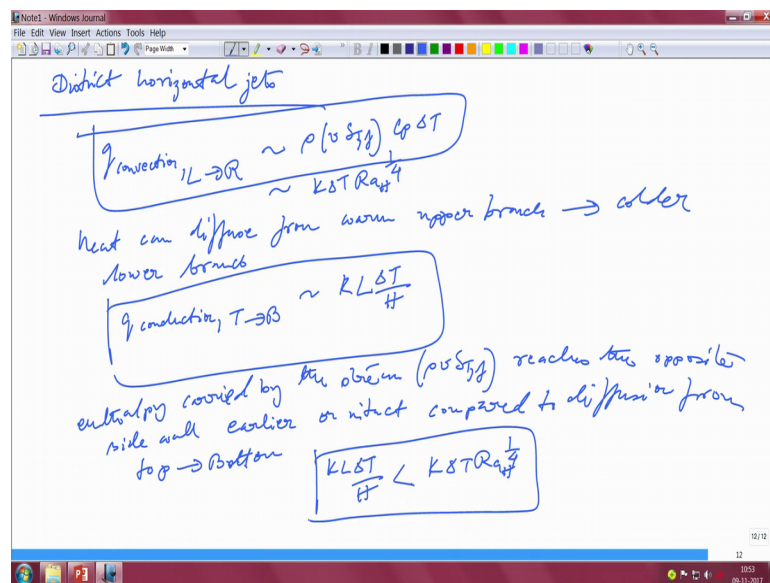 Note1 - Windows Journal
File Edit View Insert Actions Tools Help
Page Width
B I
District horizontal jets
q convection, L→R ~ ρ(v δT,f) Cp ΔT
~ KΔT Ra_H^1/4
heat can diffuse from warm upper branch → colder
lower branch
q conduction, T→B ~ KL ΔT/H
enthalpy carried by the stream (ρvδT,f) reaches the opposite
side wall earlier or intact compared to diffusion from
top → Bottom
KLΔT/H < KΔT Ra_H^1/4
12/12
12
10:53
09-11-2017